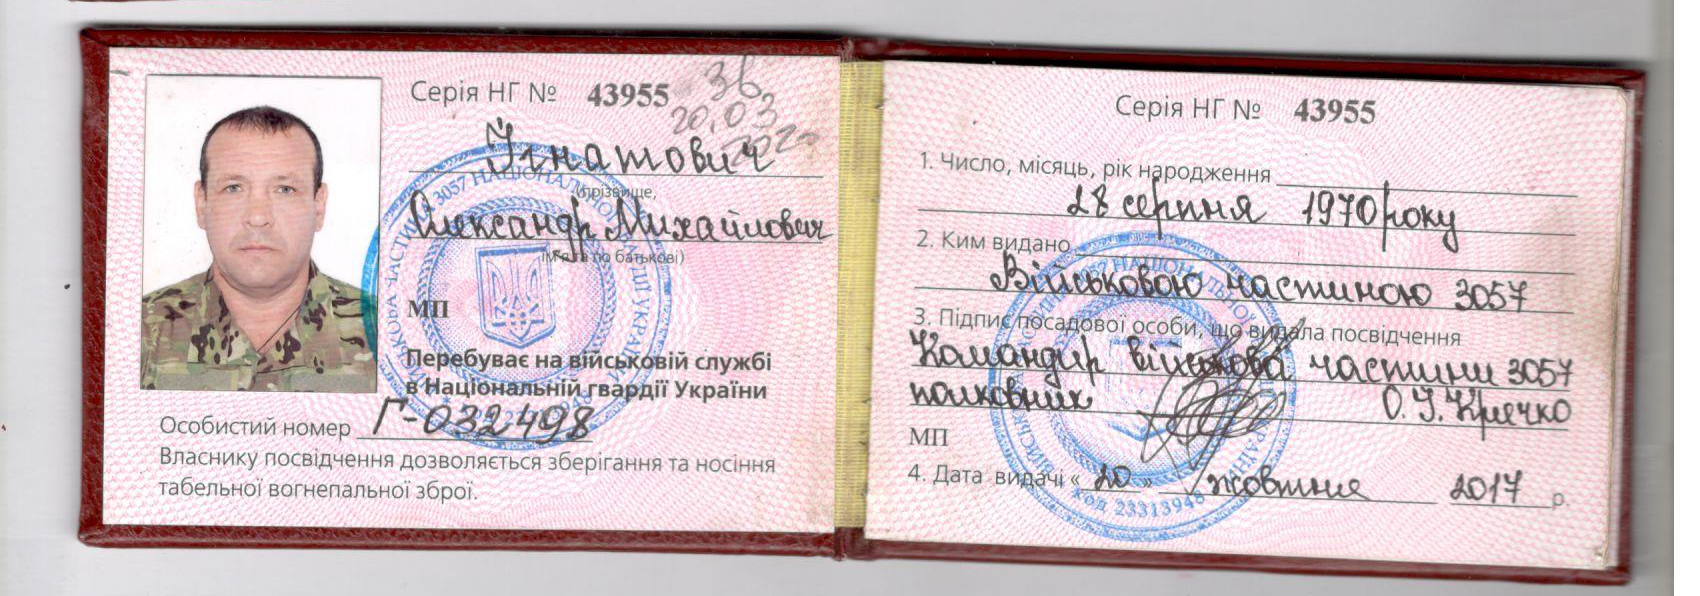 Серія НГ № 43955
36
20.03
2020
Ігнатович
(прізвище,
Олександр Михайлович
ім'я та по батькові)
МП
Перебуває на військовій службі
в Національній гвардії України
Особистий номер Г-032498
Власнику посвідчення дозволяється зберігання та носіння
табельної вогнепальної зброї.
Серія НГ № 43955
1. Число, місяць, рік народження
28 серпня 1970 року
2. Ким видано
Військовою частиною 3057
3. Підпис посадової особи, що видала посвідчення
Командир військова частини 3057
полковник О.І. Кречко
МП
4. Дата видачі « 20 » жовтня 2017 р.
код 23313948